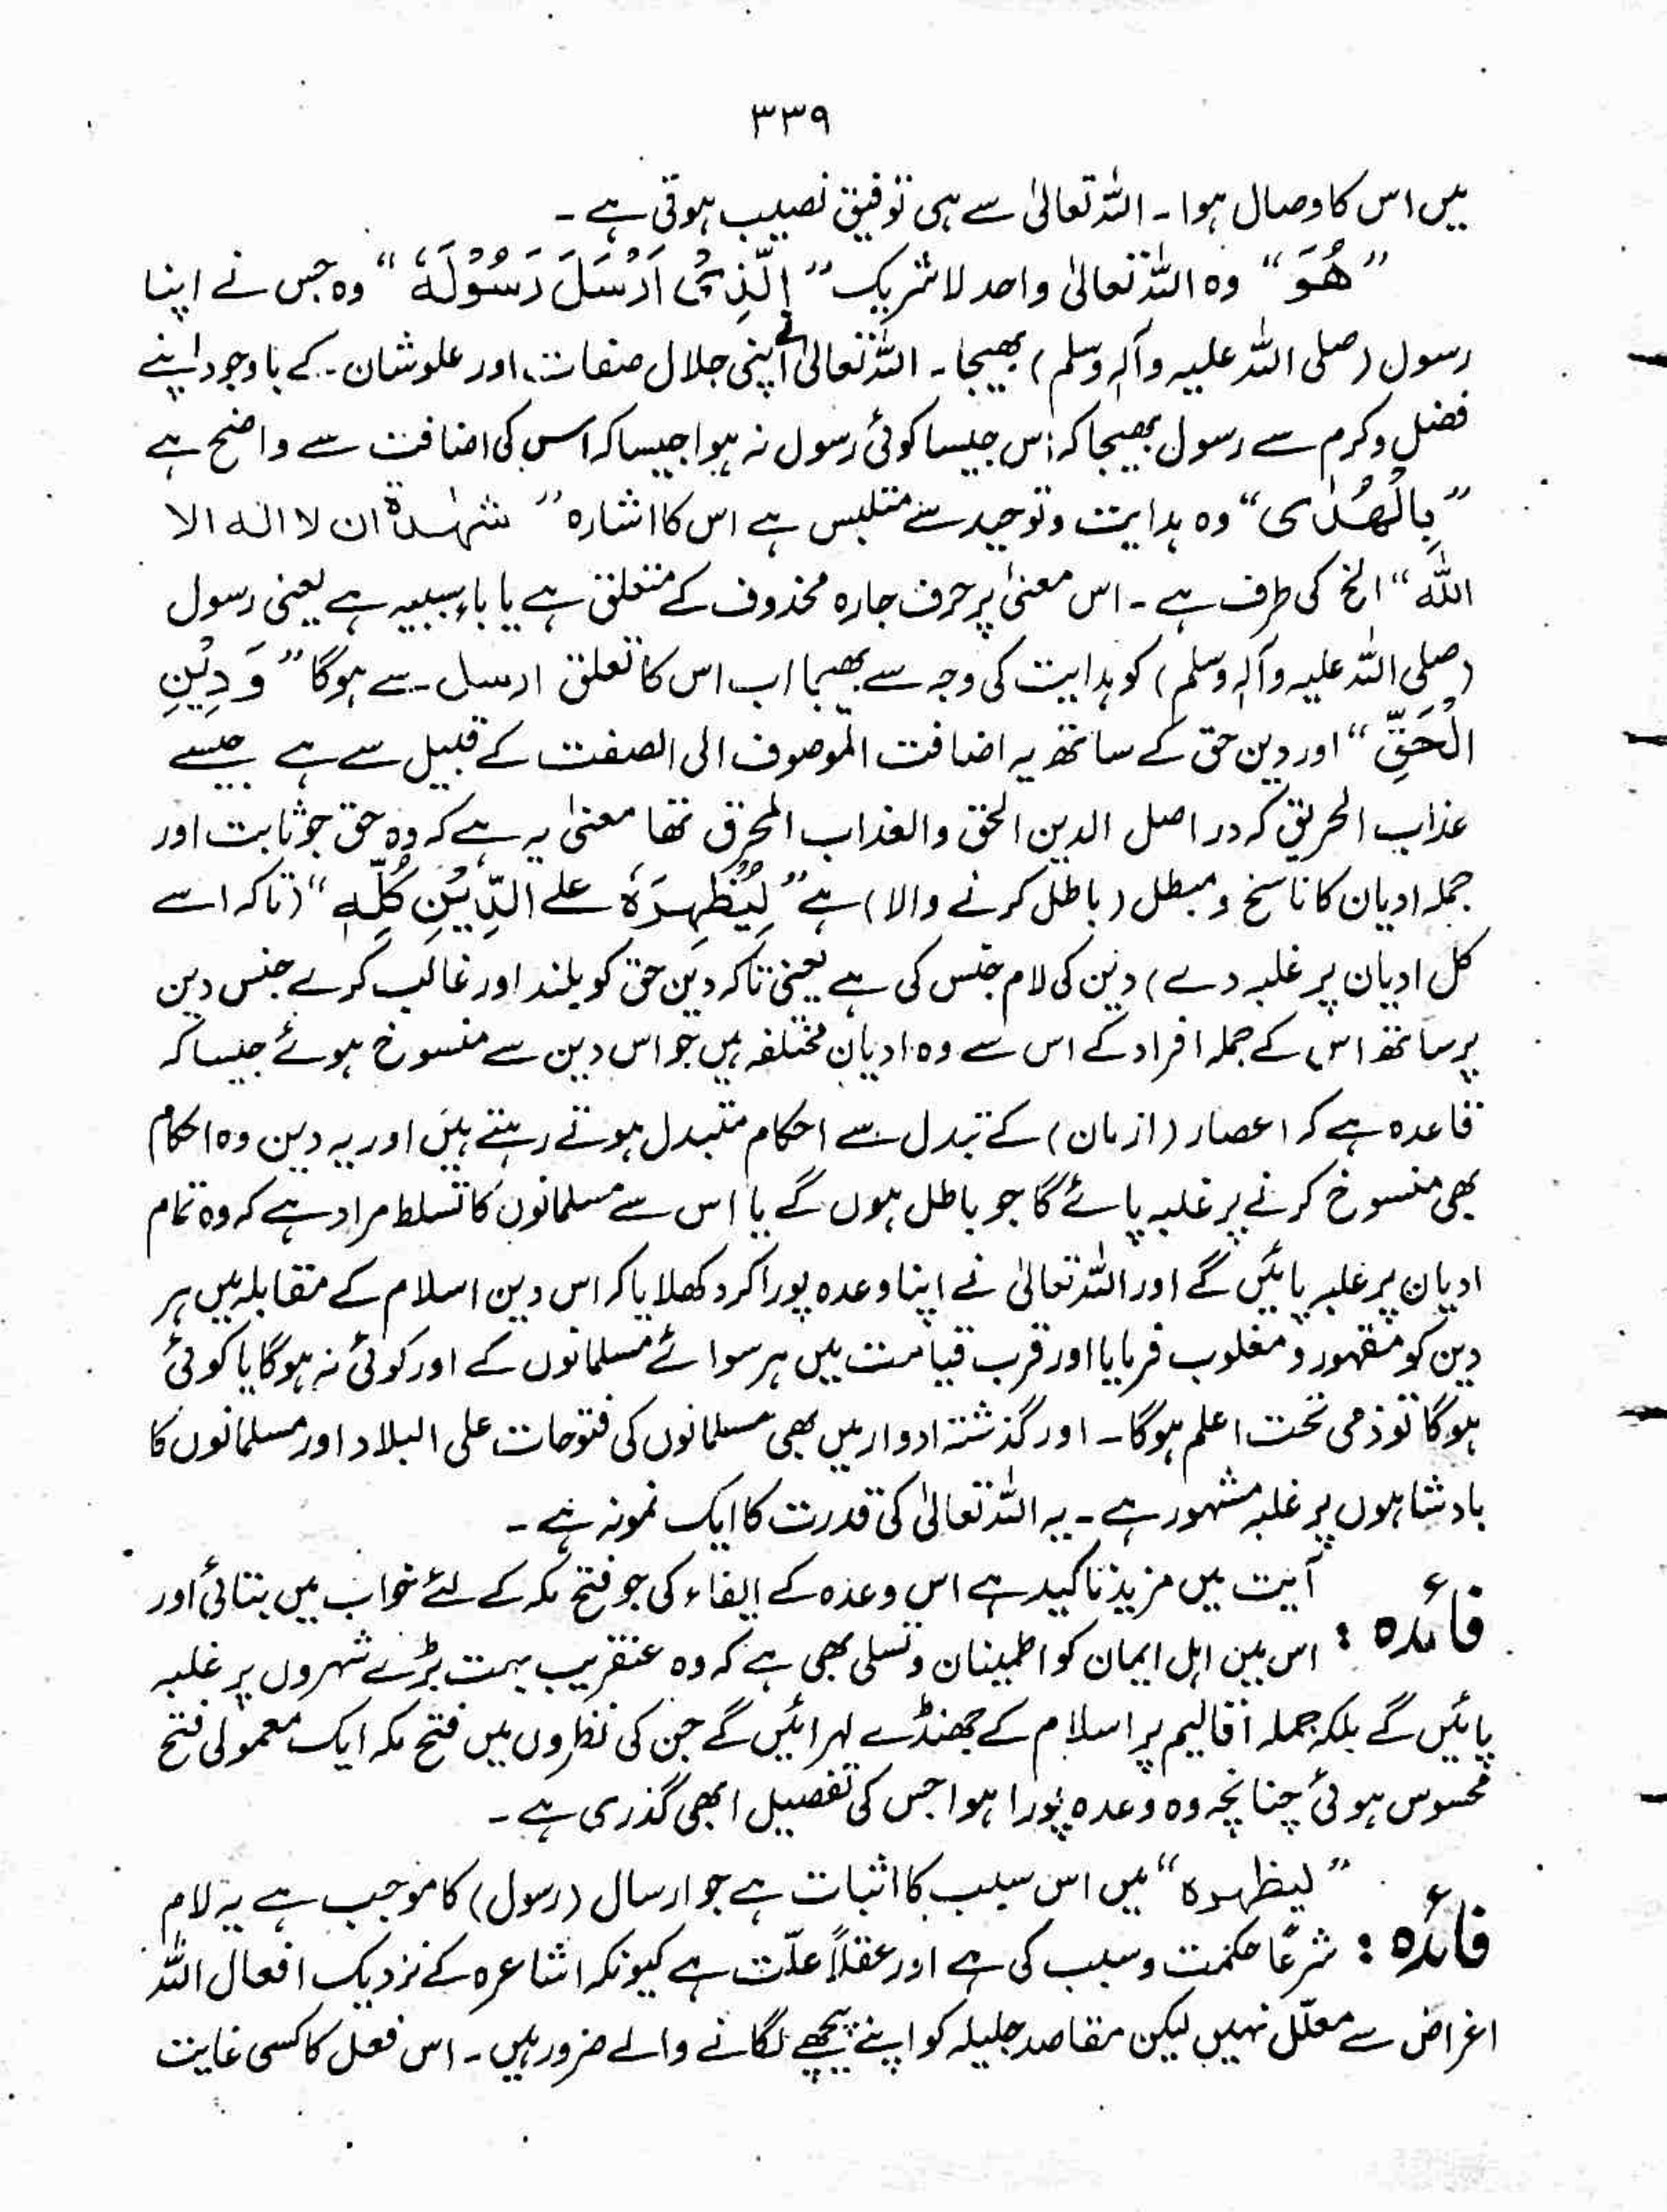 ۳۳۹
میں اس کا وصال ہوا۔ اللہ تعالیٰ سے ہی توفیق نصیب ہوتی ہے۔
”هُوَ“ وہ اللہ تعالیٰ واحد لا شریک ”الَّذِیْ اَرْسَلَ رَسُوْلَهٗ“ وہ جس نے اپنا
رسول (صلی اللہ علیہ وآلہٖ وسلم) بھیجا۔ اللہ تعالیٰ نے اپنی جلال صفات اور علو شان۔ کے باوجود اپنے
فضل و کرم سے رسول بھیجا کہ اس جیسا کوئی رسول نہ ہوا جیسا کہ اس کی اضافت سے واضح ہے
”بِالْهُدٰى“ وہ ہدایت و توحید سے متلبس ہے اس کا اشارہ ”شهٰدة ان لا اله الا
الله“ الخ کی طرف ہے۔ اس معنیٰ پر حرف جارہ محذوف کے متعلق ہے یا باء سببیہ ہے یعنی رسول
(صلی اللہ علیہ وآلہٖ وسلم) کو ہدایت کی وجہ سے بھیجا اب اس کا تعلق ارسل۔ سے ہوگا ”وَ دِیْنِ
الْحَقِّ“ اور دین حق کے ساتھ یہ اضافت الموصوف الی الصفت کے قبیل سے ہے جیسے
عذاب الحریق کہ دراصل الدین الحق والعذاب المحرق تھا معنیٰ یہ ہے کہ وہ حق جو ثابت اور
جملہ ادیان کا ناسخ و مبطل (باطل کرنے والا) ہے ”لِیُظْهِرَهٗ علے الدِّیْنِ كُلِّهٖ“ (تاکہ اسے
کل ادیان پر غلبہ دے) دین کی لام جنس کی ہے یعنی تاکہ دین حق کو بلند اور غالب کرے جنس دین
پر ساتھ اس کے جملہ افراد کے اس سے وہ ادیان مختلفہ ہیں جو اس دین سے منسوخ ہوئے جیسا کہ
قاعدہ ہے کہ اعصار (ازمان) کے تبدل سے احکام متبدل ہوتے رہتے ہیں اور یہ دین وہ احکام
بھی منسوخ کرنے پر غلبہ پائے گا جو باطل ہوں گے یا اس سے مسلمانوں کا تسلط مراد ہے کہ وہ تمام
ادیان پر غلبہ پائیں گے اور اللہ تعالیٰ نے اپنا وعدہ پورا کر دکھلایا کہ اس دین اسلام کے مقابلہ میں ہر
دین کو مقہور و مغلوب فرمایا اور قرب قیامت میں ہر سوائے مسلمانوں کے اور کوئی نہ ہوگا یا کوئی
ہوگا تو ذمی تحت اعلم ہوگا۔ اور گذشتہ ادوار میں بھی مسلمانوں کی فتوحات علی البلاد اور مسلمانوں کا
بادشاہوں پر غلبہ مشہور ہے۔ یہ اللہ تعالیٰ کی قدرت کا ایک نمونہ ہے۔
فائدہ : آیت میں مزید تاکید ہے اس وعدہ کے ایفاء کی جو فتح مکہ کے لئے خواب میں بتائی اور
اس میں اہل ایمان کو اطمینان و تسلی بھی ہے کہ وہ عنقریب بہت بڑے شہروں پر غلبہ
پائیں گے بلکہ جملہ اقالیم پر اسلام کے جھنڈے لہرائیں گے جن کی نظروں میں فتح مکہ ایک معمولی فتح
محسوس ہوئی چنانچہ وہ وعدہ پورا ہوا جس کی تفصیل ابھی گذری ہے۔
فائدہ : ”لیظهره“ میں اس سبب کا اثبات ہے جو ارسال (رسول) کا موجب ہے یہ لام
شرعًا حکمت و سبب کی ہے اور عقلًا علّت ہے کیونکہ اشاعرہ کے نزدیک افعال اللہ
اغراض سے معلّل نہیں لیکن مقاصد جلیلہ کو اپنے پیچھے لگانے والے ضرور ہیں۔ اس فعل کا کسی غایت